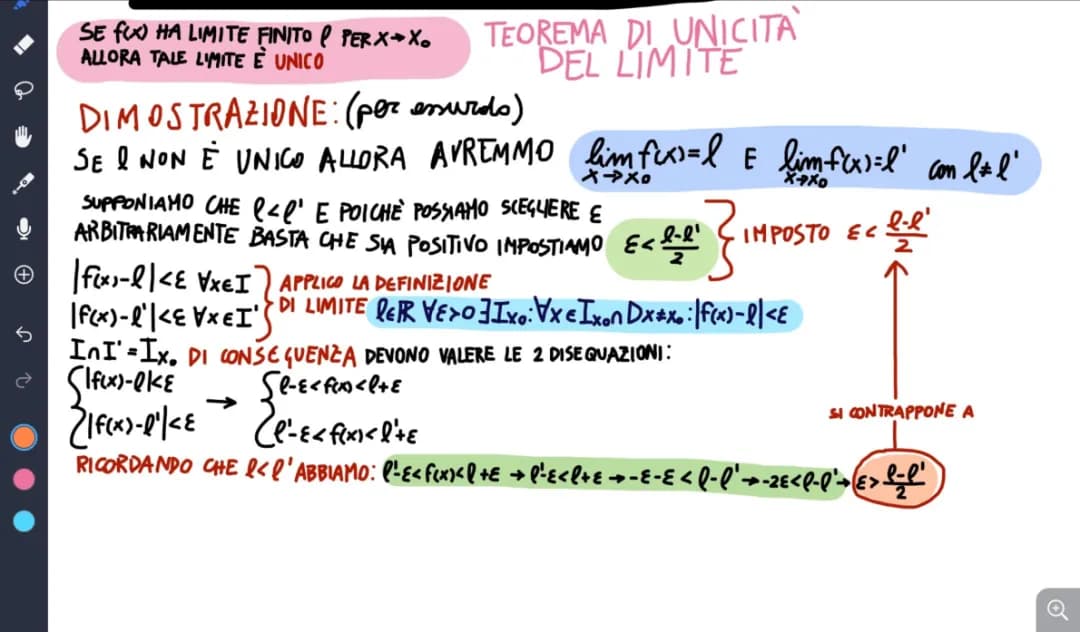 SE f(x) HA LIMITE FINITO l PER X→X₀
ALLORA TALE LIMITE È UNICO
TEOREMA DI UNICITÀ
DEL LIMITE
DIMOSTRAZIONE: (per assurdo)
SE l NON È UNICO ALLORA AVREMMO lim f(x)=l E lim f(x)=l' con l≠l'
X→X₀ X→X₀
SUPPONIAMO CHE l<l' E POICHÈ POSSIAMO SCEGLIERE E
ARBITRARIAMENTE BASTA CHE SIA POSITIVO IMPOSTIAMO ε< l-l'/2 } IMPOSTO ε< l-l'/2
|f(x)-l|<ε ∀x∈I } APPLICO LA DEFINIZIONE
|f(x)-l'|<ε ∀x∈I' } DI LIMITE l∈ℝ ∀ε>0 ∃Ix₀:∀x∈Ix₀∩Dx≠x₀:|f(x)-l|<ε
I∩I'=Ix₀ DI CONSEGUENZA DEVONO VALERE LE 2 DISEQUAZIONI:
{|f(x)-l|<ε → {l-ε<f(x)<l+ε
{|f(x)-l'|<ε {l'-ε<f(x)<l'+ε
SI CONTRAPPONE A
RICORDANDO CHE l<l' ABBIAMO: l'-ε<f(x)<l+ε → l'-ε<l+ε → -ε-ε<l-l' → -2ε<l-l' → ε> l-l'/2